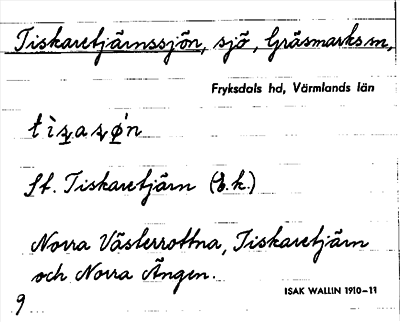 Tiskaretjärnssjön, sjö, Gräsmarks sn,
Fryksdals hd, Värmlands län
St. Tiskaretjärn (E.k.)
Norra Västerrottna, Tiskaretjärn
och Norra Ängen.
ISAK WALLIN 1910-11
9